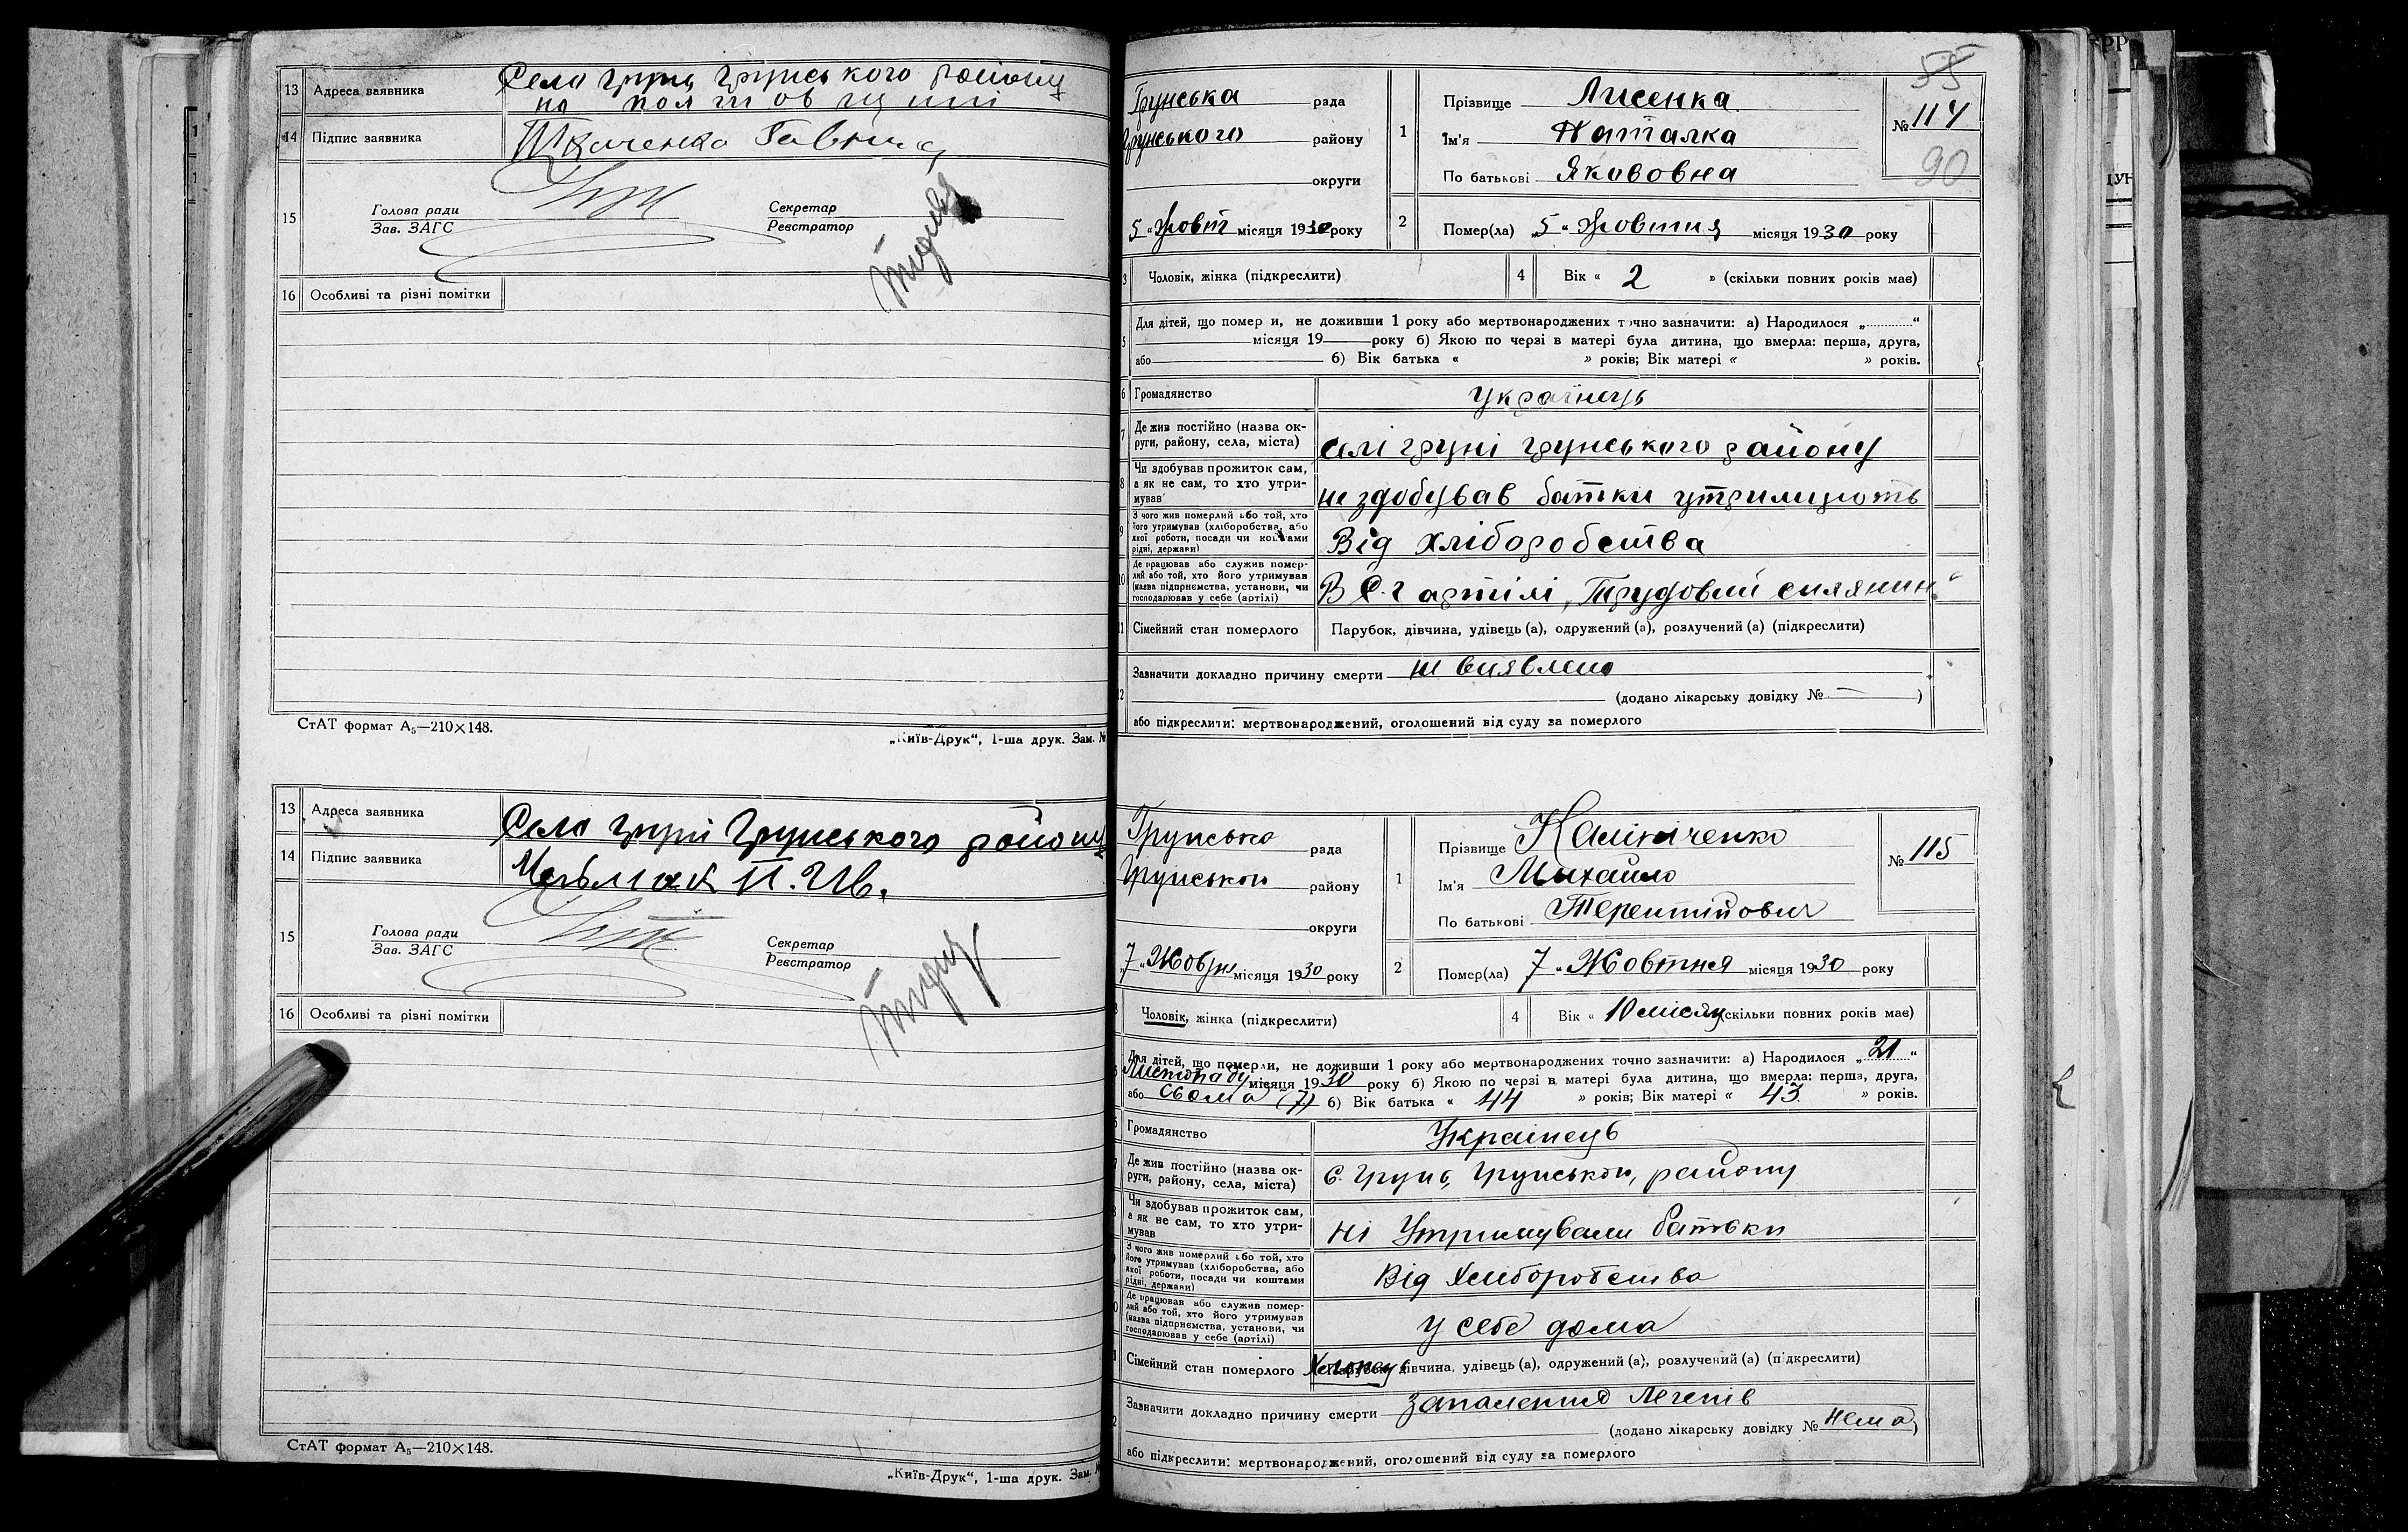 13 Адреса заявника Село Грунь Грунського району
на полтовщині
14 Підпис заявника Ткаченко Гаврило
15 Голова ради
Зав. ЗАГС
Секретар
Реєстратор
16 Особливі та різні помітки
СтАТ формат А₅—210×148.
„Київ-Друк“, 1-ша друк. Зам. №
13 Адреса заявника Село Груні Грунського району
14 Підпис заявника П. Ів.
15 Голова ради
Зав. ЗАГС
Секретар
Реєстратор
16 Особливі та різні помітки
СтАТ формат А₅—210×148.
„Київ-Друк“, 1-ша друк. Зам. №
55
Грунська рада
Грунського району
округи
5 „Жовт місяця 1930 року
1 Прізвище Лисенка
Ім'я Наталка
По батькові Якововна
№ 114
90
2 Помер(ла) „5“ Жовтня місяця 1930 року
3 Чоловік, жінка (підкреслити)
4 Вік « 2 » (скільки повних років має)
5 Для дітей, що померли, не доживши 1 року або мертвонароджених точно зазначити: а) Народилося „............“
місяця 19 року б) Якою по черзі в матері була дитина, що вмерла: перша, друга,
або б) Вік батька « » років; Вік матері « » років.
6 Громадянство українець
7 Де жив постійно (назва ок-
руги, району, села, міста) селі груні грунського району
8 Чи здобував прожиток сам,
а як не сам, то хто утри-
мував не здобував батки утримують
9 З чого жив померлий або той, хто
його утримував (хліборобства, або
якої роботи, посади чи коштами
рідні, держави) Від хліборобства
10 Де працював або служив помер-
лий або той, хто його утримував
(назва підприємства, установи, чи
господарював у себе (артілі) В С.г артілі „Трудовий силянин“
11 Сімейний стан померлого Парубок, дівчина, удівець (а), одружений (а), розлучений (а) (підкреслити)
12 Зазначити докладно причину смерти не виявлено
(додано лікарську довідку № — )
або підкреслити: мертвонароджений, оголошений від суду за померлого
Грунська рада
Грунського району
округи
„7“ Жовтн місяця 1930 року
1 Прізвище Калініченко
Ім'я Михайло
По батькові Терентійович
№ 115
2 Помер(ла) 7 „Жовтня місяця 1930 року
3 Чоловік, жінка (підкреслити)
4 Вік « 10 місяц (скільки повних років має)
5 Для дітей, що померли, не доживши 1 року або мертвонароджених точно зазначити: а) Народилося „21“
Листопаду місяця 1930 року б) Якою по черзі в матері була дитина, що вмерла: перша, друга,
або сьома (7) б) Вік батька « 44 » років; Вік матері « 43 » років.
6 Громадянство Українець
7 Де жив постійно (назва ок-
руги, району, села, міста) С. Грунь, Грунськог, району
8 Чи здобував прожиток сам,
а як не сам, то хто утри-
мував Ні Утримували батьки
9 З чого жив померлий або той, хто
його утримував (хліборобства, або
якої роботи, посади чи коштами
рідні, держави) Від Хліборобства
10 Де працював або служив помер-
лий або той, хто його утримував
(назва підприємства, установи, чи
господарював у себе (артілі) У себе дома
11 Сімейний стан померлого Хлопець Парубок, дівчина, удівець (а), одружений (а), розлучений (а) (підкреслити)
12 Зазначити докладно причину смерти Запалення Легенів
(додано лікарську довідку № нема)
або підкреслити: мертвонароджений, оголошений від суду за померлого